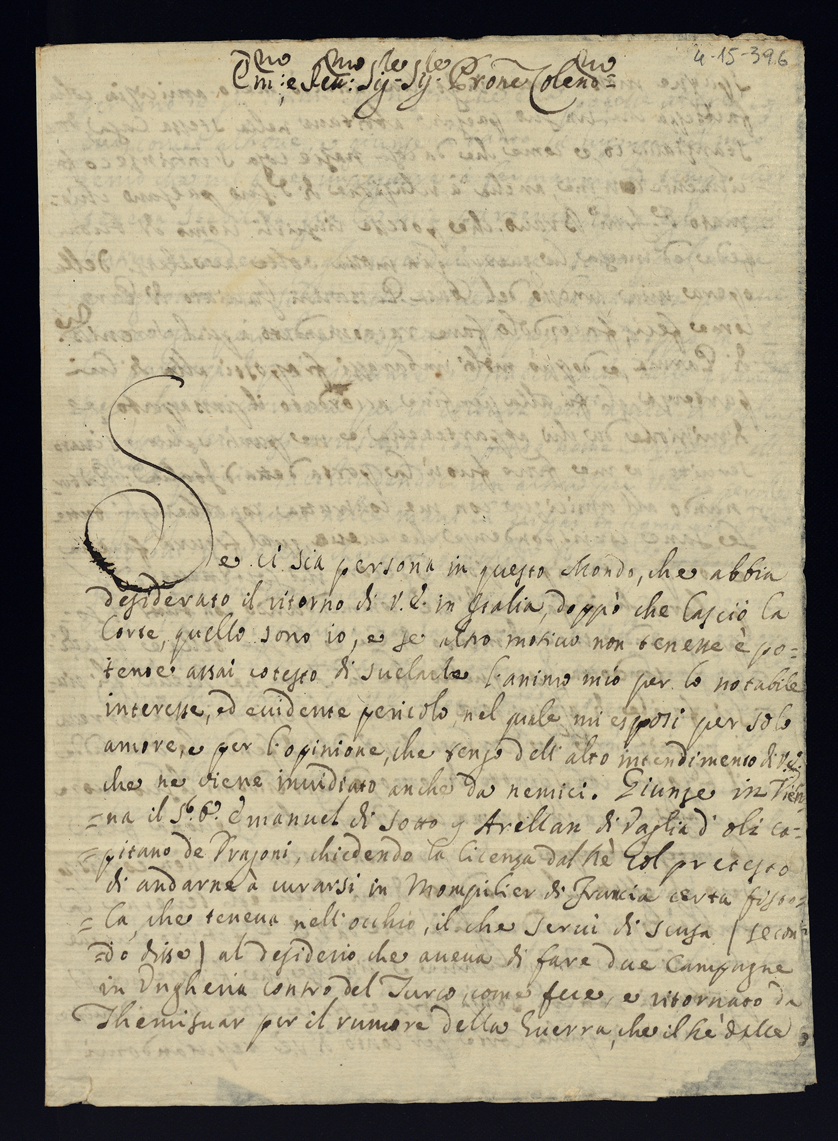 4-15-396
Em:mo e Rev:mo Sig:re Sig:re Prone Colend:mo
Se ci sia persona in questo Mondo, che abbia
desiderato il ritorno di V.E. in Italia, doppò che lasciò la
Corte, quello sono io, e se altro motivo non tenesse è po=
tente assai cotesto di suelarle l'animo mio per lo notabile
interesse, ed euidente pericolo, nel quale mi esposi per solo
amore, e per l'opinione, che tengo dell'alto intendimento di V.E.
che ne viene inuidiato anche da nemici. Giunse in Vien
=na il Emanuel di Sotto y Arellan di
=pitano de Dragoni, chiedendo la licenza dal Rè col pretesto
di andarne à curarsi in Mompilier di Francia certa fisto=
=la, che teneua nell'occhio, il che serui di scusa (secon=
=dò disse) al desiderio che aueua di fare due Campagne
in Ungheria contro del Turco, come fece, e ritornato da
Themisuar per il rumore della Guerra, che il Rè dalle